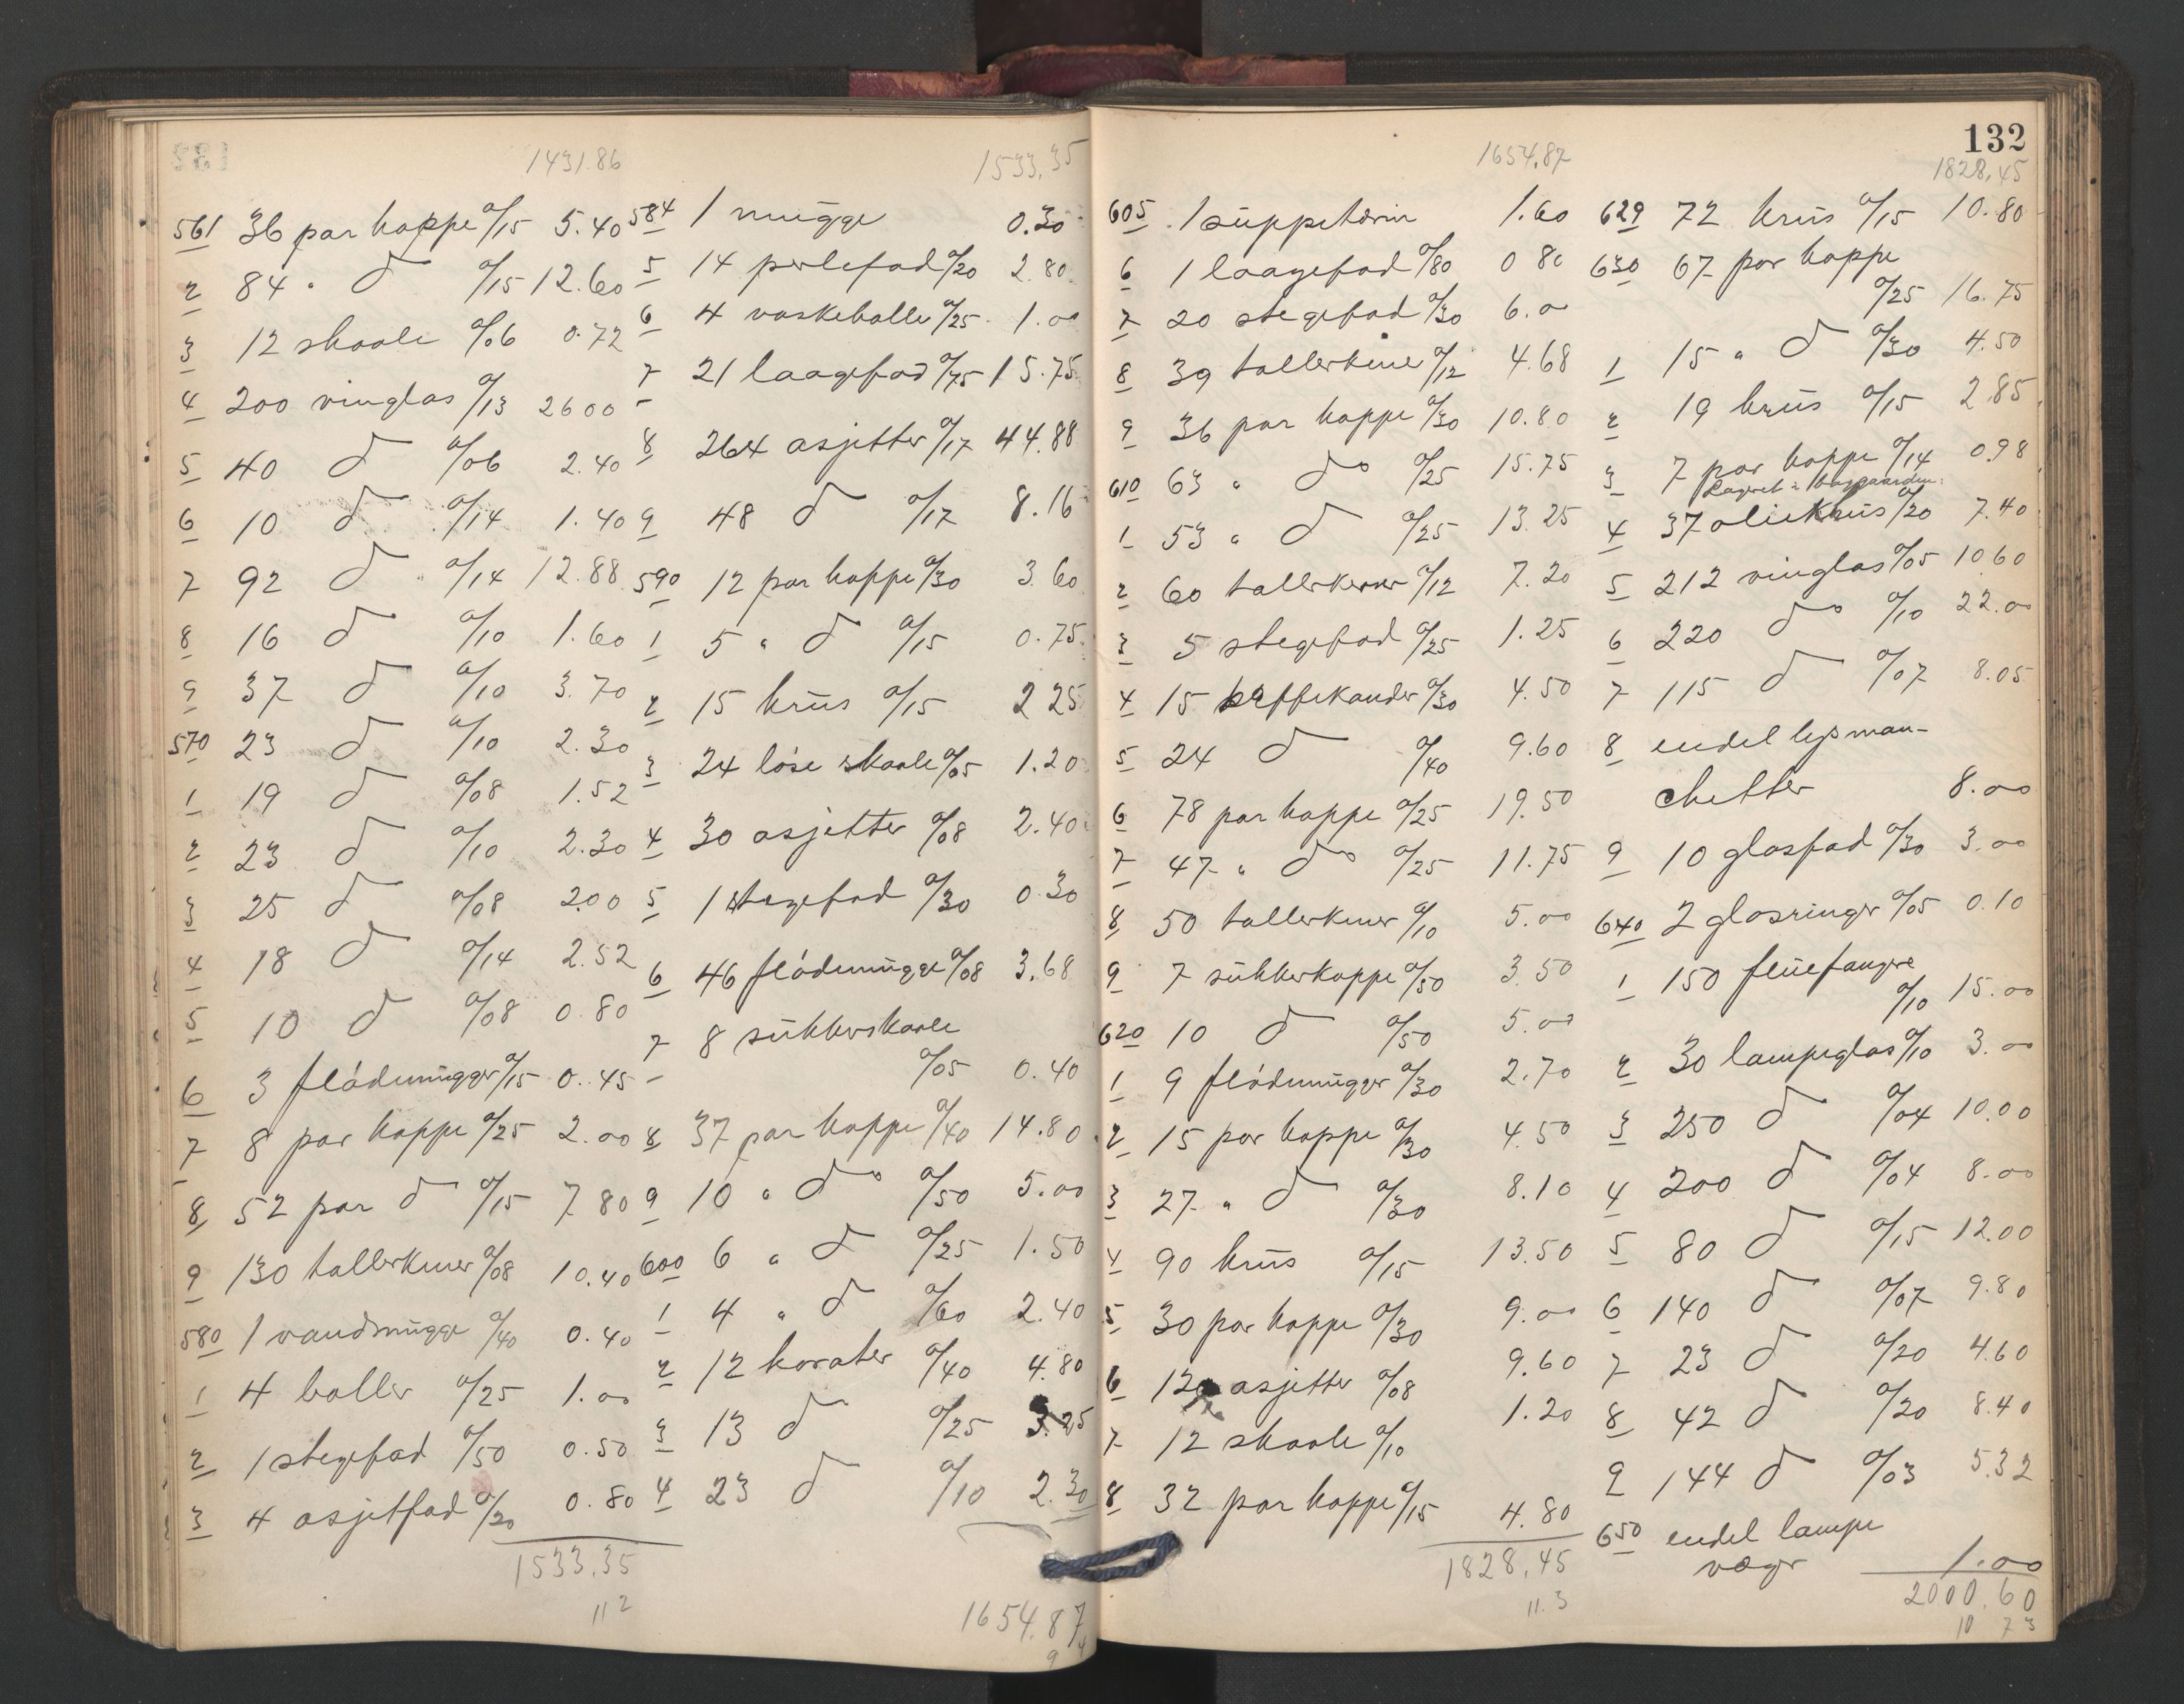 1431.86
561 36 par koppe a/15 5.40
2 84 " do a/15 12.60
3 12 skaale a/06 0.72
4 200 vinglas a/13 26 00
5 40 do a/06 2.40
6 10 do a/14 1.40
7 92 do a/14 12.88
8 16 do a/10 1.60
9 37 do a/10 3.70
570 23 do a/10 2.30
1 19 do a/08 1.52
2 23 do a/10 2.30
3 25 do a/08 2.00
4 18 do a/14 2.52
5 10 do a/08 0.80
6 3 flödemügger a/15 0.45
7 8 par koppe a/25 2.00
8 52 par do a/15 7.80
9 130 tallerkner a/08 10.40
580 1 vandmügge a/40 0.40
1 4 boller a/25 1.00
2 1 stegefad a/50 0.50
3 4 asjetfad a/20 0.80
1533.35
11 2
1533.35
584 1 mügge 0.30
5 14 perlefad a/20 2.80
6 4 vaskeballe a/25 1.00
7 21 laagefad a/75 15.75
8 264 asjetter a/17 44.88
9 48 do a/17 8.16
590 12 par koppe a/30 3.60
1 5 " do a/15 0.75
2 15 krüs a/15 2 25
3 24 löse skaale a/05 1.20
4 30 asjetter a/08 2.40
5 1 stegefad a/30 0.30
6 46 flödemügge a/08 3.68
7 8 sükkerskaale
a/05 0.40
8 37 par koppe a/40 14.80
9 10 " do a/50 5.00
600 6 " do a/25 1.50
1 4 " do a/60 2.40
2 12 karafler a/40 4.80
3 13 do a/25 3.25
4 23 do a/10 2.30
1654.87
132
1654.87
605 1 süppeterin 1.60
6 1 laagefad a/80 0 80
7 20 stegefad a/30 6.00
8 39 tallerkner a/12 4.68
9 36 par koppe a/30 10.80
610 63 " do a/25 15.75
1 53 " do a/25 13.25
2 60 tallerkener a/12 7.20
3 5 stegefad a/25 1.25
4 15 kaffekander a/30 4.50
5 24 do a/40 9.60
6 78 par koppe a/25 19.50
7 47 " do a/25 11.75
8 50 tallerkner a/10 5.00
9 7 sükkerkoppe a/50 3.50
620 10 do a/50 5.00
1 9 flödemügger a/30 2.70
2 15 par koppe a/30 4.50
3 27 " do a/30 8.10
4 90 krüs a/15 13.50
5 30 par koppe a/30 9.00
6 120 asjetter a/08 9.60
7 12 skaale a/10 1.20
8 32 par koppe a/15 4.80
1828.45
11.3
1828.45
629 72 krüs a/15 10.80
630 67 par koppe
a/25 16.75
1 15 " do a/30 4.50
2 19 krüs a/15 2.85
3 7 par koppe a/14 0.98
Lageret i baggaarden:
4 37 oliekrüs a/20 7.40
5 212 vinglas a/05 10.60
6 220 do a/10 22.00
7 115 do a/07 8.05
8 endel lysman-
chetter 8.00
9 10 glasfad a/30 3.00
640 2 glasringer a/05 0.10
1 150 flüefangre
a/10 15.00
2 30 lampeglas a/10 3.00
3 250 do a/04 10.00
4 200 do a/04 8.00
5 80 do a/15 12.00
6 140 do a/07 9.80
7 23 do a/20 4.60
8 42 do a/20 8.40
9 144 do a/03 5.32
650 endel lampe
væger 1.00
2000.60
10 7 3